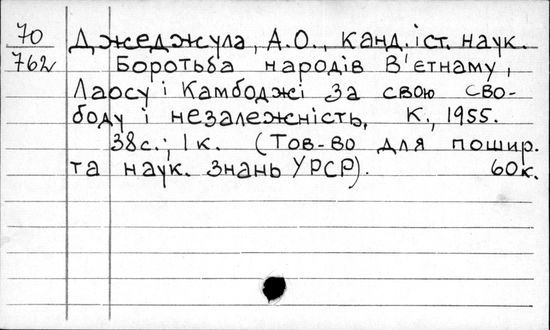 70 Джеджула, А.О., канд. іст. наук.
762 Боротьба народів В'єтнаму,
Лаосу і Камбоджі за свою сво-
боду і незалежність, К., 1955.
38с.; 1к. (Тов-во для пошир.
та наук. знань УРСР). 60к.